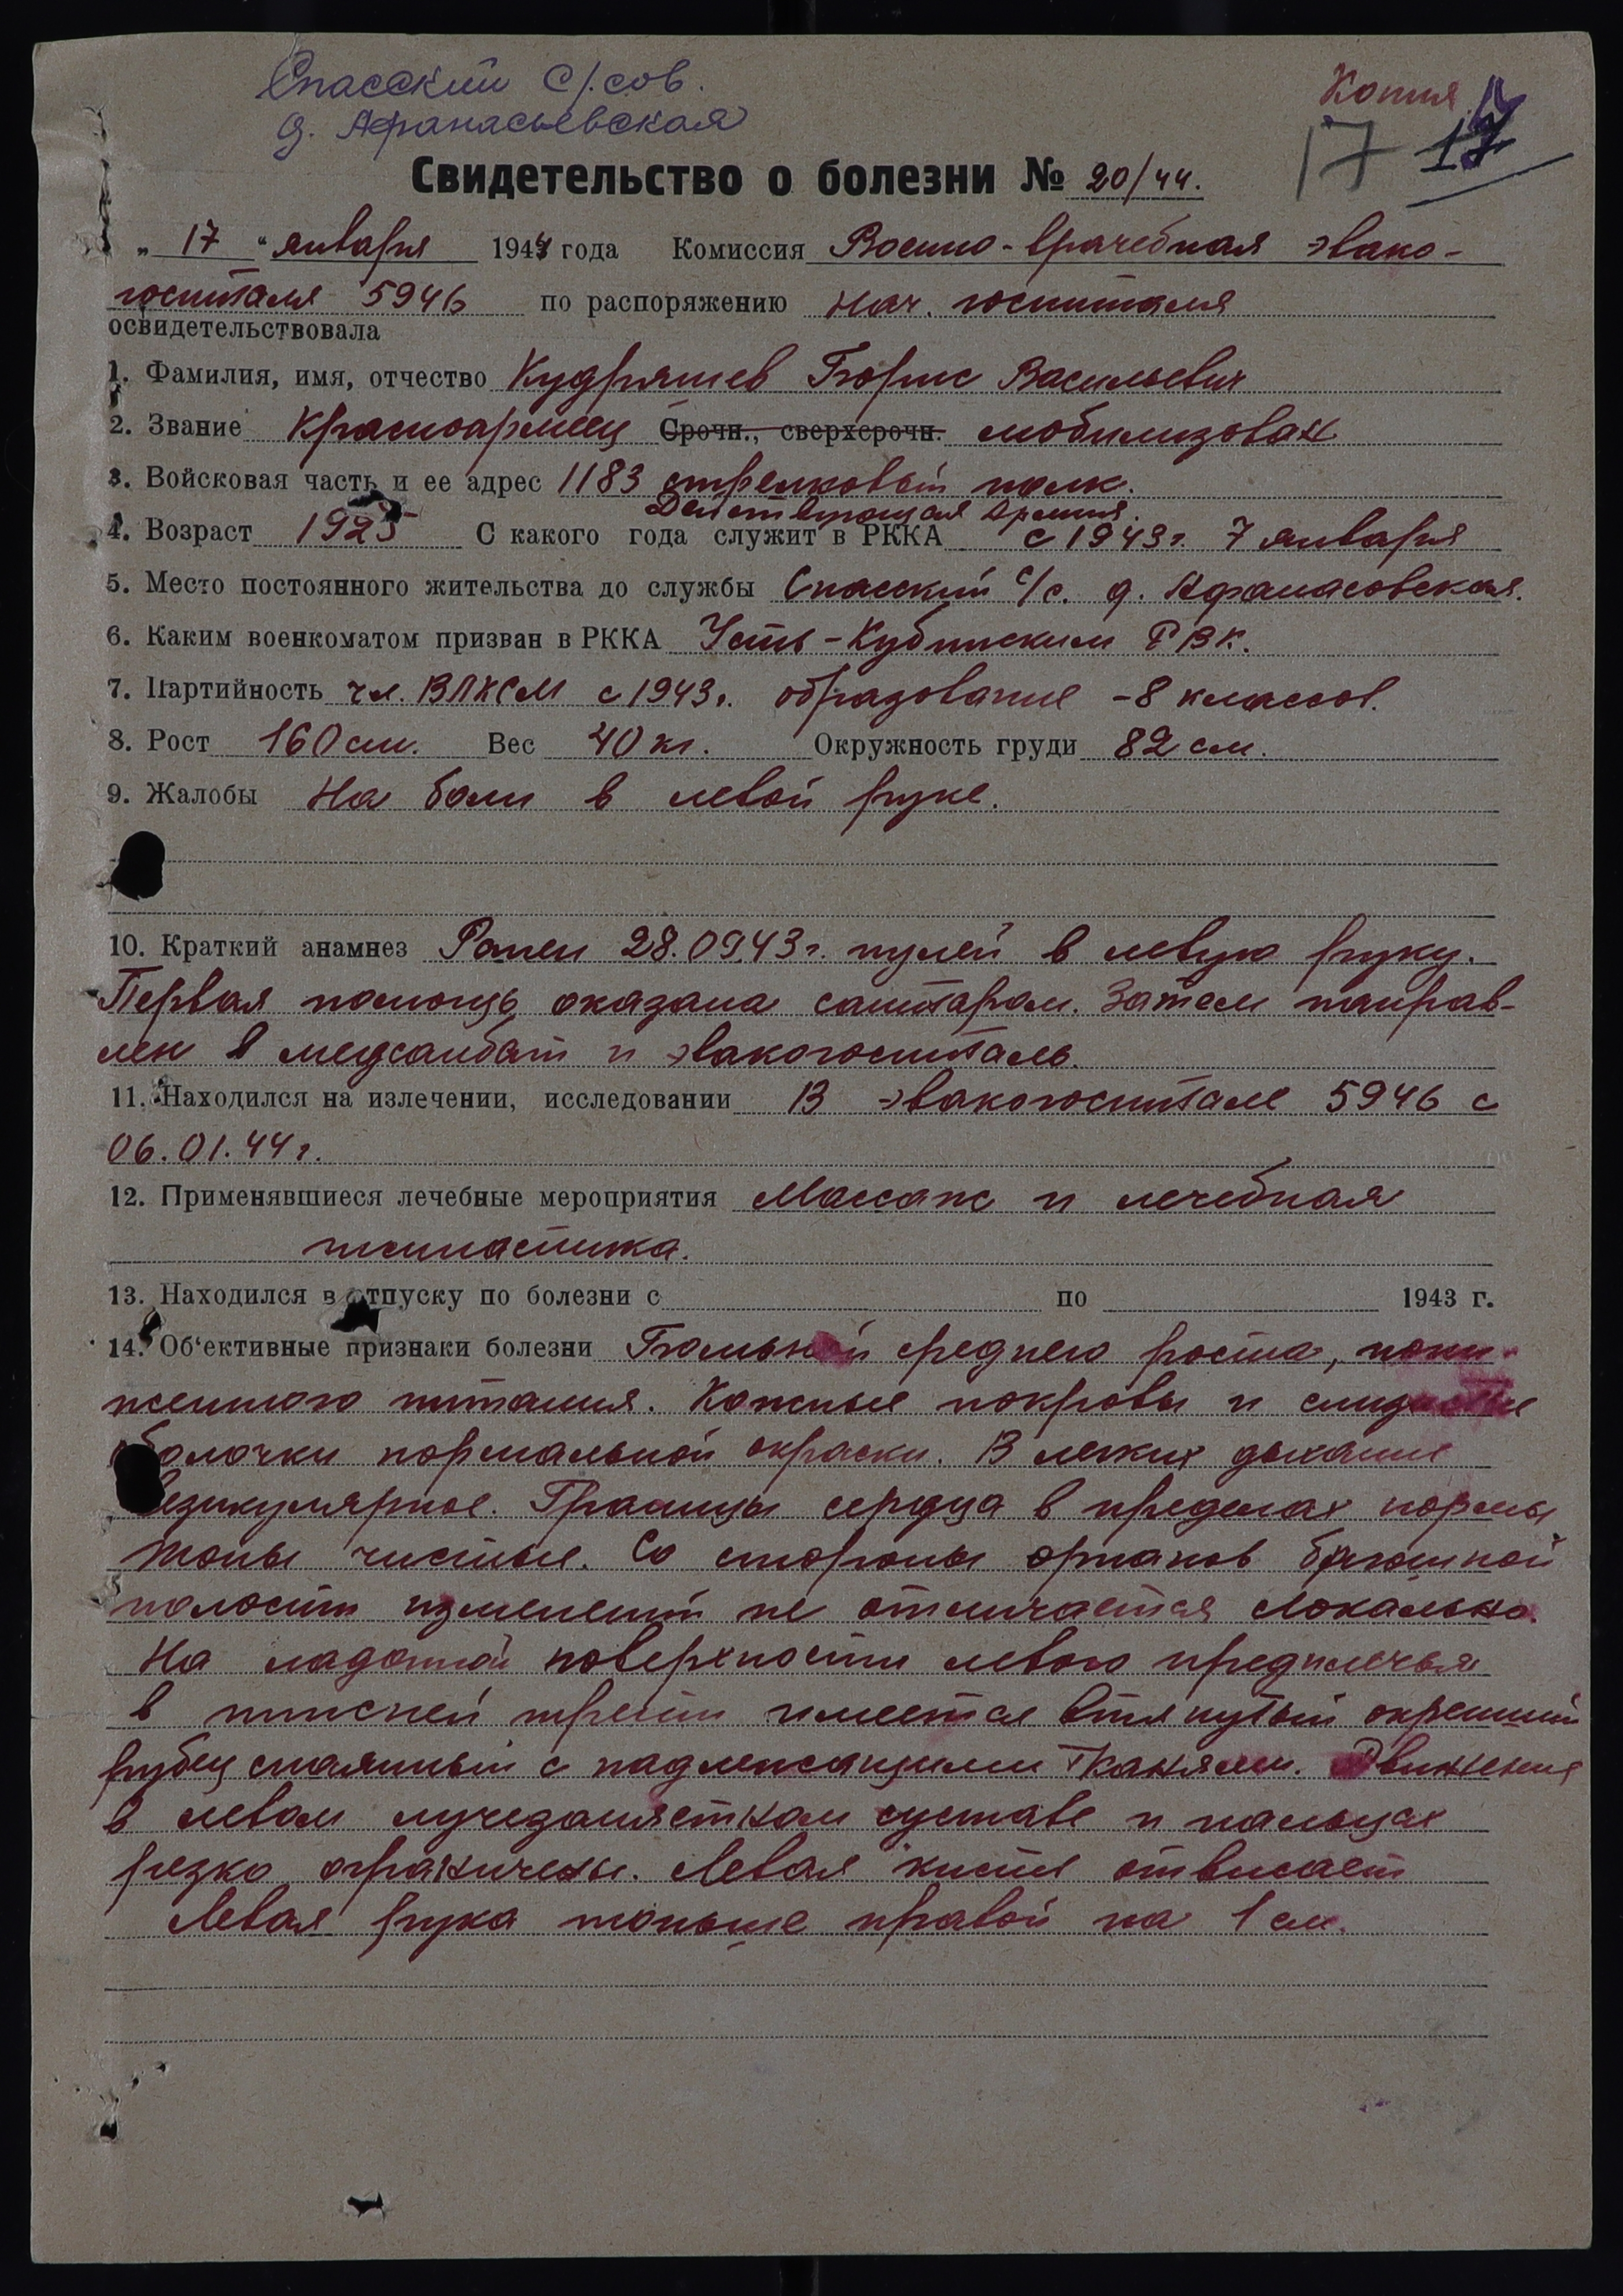 Спасский с/сов.
д. Афанасьевская
Копия
17 17
Свидетельство о болезни № 20/44.
„ 17 “ января 1944 года Комиссия Военно-врачебная эвако-
госпиталя 5946 по распоряжению нач. госпиталя
освидетельствовала
1. Фамилия, имя, отчество Кудряшев Борис Васильевич
2. Звание Красноармеец Срочн., сверхсрочн. мобилизован
3. Войсковая часть и ее адрес 1183 стрелковый полк.
Действующая Армия.
4. Возраст 1925 С какого года служит в РККА с 1943г. 7 января
5. Место постоянного жительства до службы Спасский с/с. д. Афанасовская.
6. Каким военкоматом призван в РККА Усть-Кубинским РВК.
7. Партийность чл. ВЛКСМ с 1943г. образование -8 классов.
8. Рост 160 см. Вес 40 кг. Окружность груди 82 см.
9. Жалобы На боли в левой руке.
10. Краткий анамнез Ранен 28.09.43г. пулей в левую руку.
Первая помощь оказана санитаром. Затем направ-
лен в медсанбат и эвакогоспиталь.
11. Находился на излечении, исследовании В эвакогоспитале 5946 с
06.01.44г.
12. Применявшиеся лечебные мероприятия Массаж и лечебная
гимнастика.
13. Находился в отпуску по болезни с по 1943 г.
14. Об'ективные признаки болезни Больной среднего роста, пони-
женного питания. Кожные покровы и слизистые
оболочки нормальной окраски. В легких дыхание
везикулярное. Границы сердца в пределах нормы
тоны чистые. Со стороны органов брюшной
полости изменений не отмечается локально.
На ладонной поверхности левого предплечья
в нижней трети имеется втянутый окрепший
рубец спаянный с надлежащими тканями. Движения
в левом лучезапястном суставе и пальцах
резко ограничены. Левая кисть отвисает
Левая рука тоньше правой на 1 см.